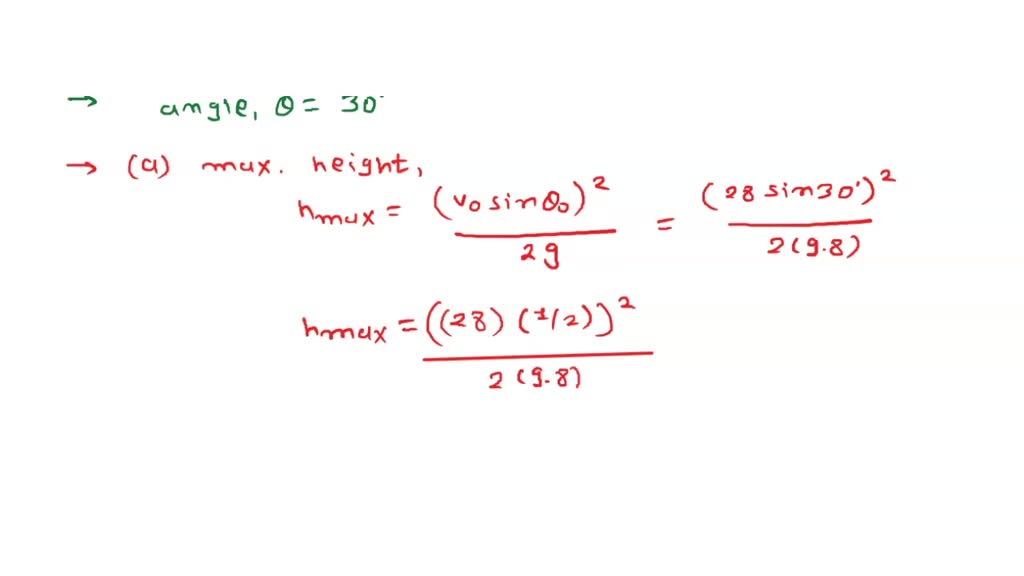 → angle, θ = 30°
→ (a) max. height,
hmax = (v₀ sinθ₀)² / 2g = (28 sin30°)² / 2(9.8)
hmax = ((28) (1/2))² / 2(9.8)